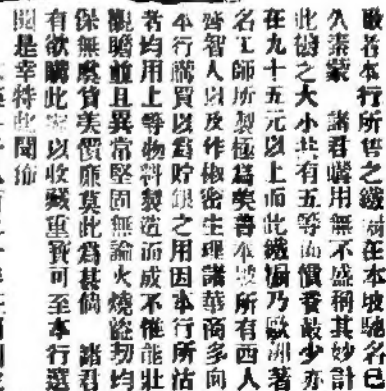 敬啓者本行所售之鐵櫃在本坡馳名日
久素蒙　諸君購用無不盛稱其妙計
此鐵之大小共有五等而價賣最少亦
在九十五元以上而此鐵櫃乃歐洲著
名工師所製極爲美善本坡所有西人
齊智人以及作椒密生理諸華商多向
本行購買以爲貯銀之用因本行所沽
者均用上等物料製造而成不惟能壯
觀瞻而且異常堅固無論火燒盜刧均
保無虞貨美價廉莫此爲甚倘　諸君
有欲購此　以收藏重資可至本行選
閱是幸特此聞佈